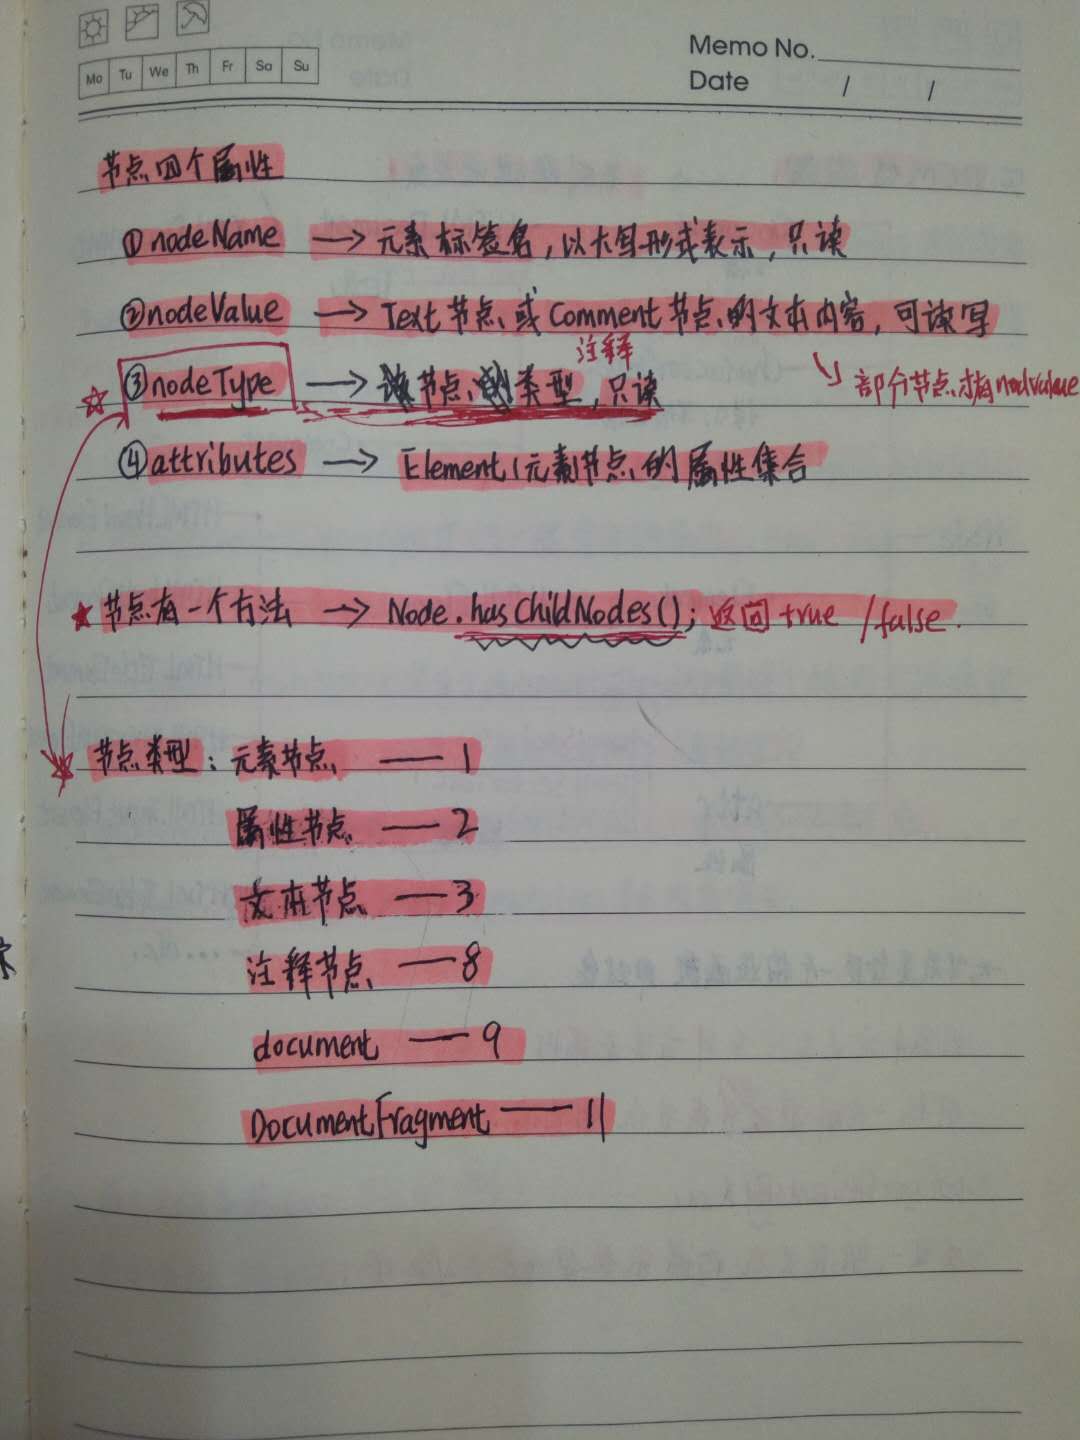 Memo No.
Mo Tu We Th Fr Sa Su
Date / /
节点四个属性
①nodeName → 元素标签名，以大写形式表示，只读
②nodeValue → Text节点或Comment节点的文本内容，可读写
注释
部分节点才有nodevalue
③nodeType → 该节点的类型，只读
④attributes → Element(元素)节点的属性集合
节点有一个方法 → Node.hasChildNodes(); 返回true /false.
节点类型：元素节点 — 1
属性节点 — 2
文本节点 — 3
注释节点 — 8
document — 9
DocumentFragment — 11